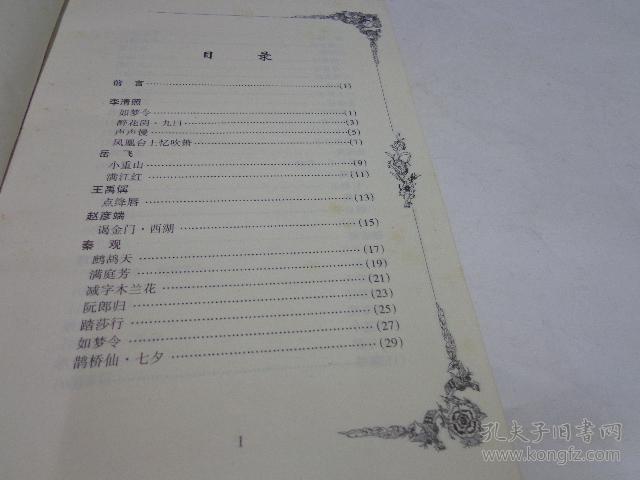 目 录
前 言……(1)
李清照
如梦令……(1)
醉花阴·九日……(3)
声声慢……(5)
凤凰台上忆吹箫……(7)
岳 飞
小重山……(9)
满江红……(11)
王禹偁
点绛唇……(13)
赵彦端
谒金门·西湖……(15)
秦 观
鹧鸪天……(17)
满庭芳……(19)
减字木兰花……(21)
阮郎归……(23)
踏莎行……(25)
如梦令……(27)
鹊桥仙·七夕……(29)
1
孔夫子旧书网
www.kongfz.com